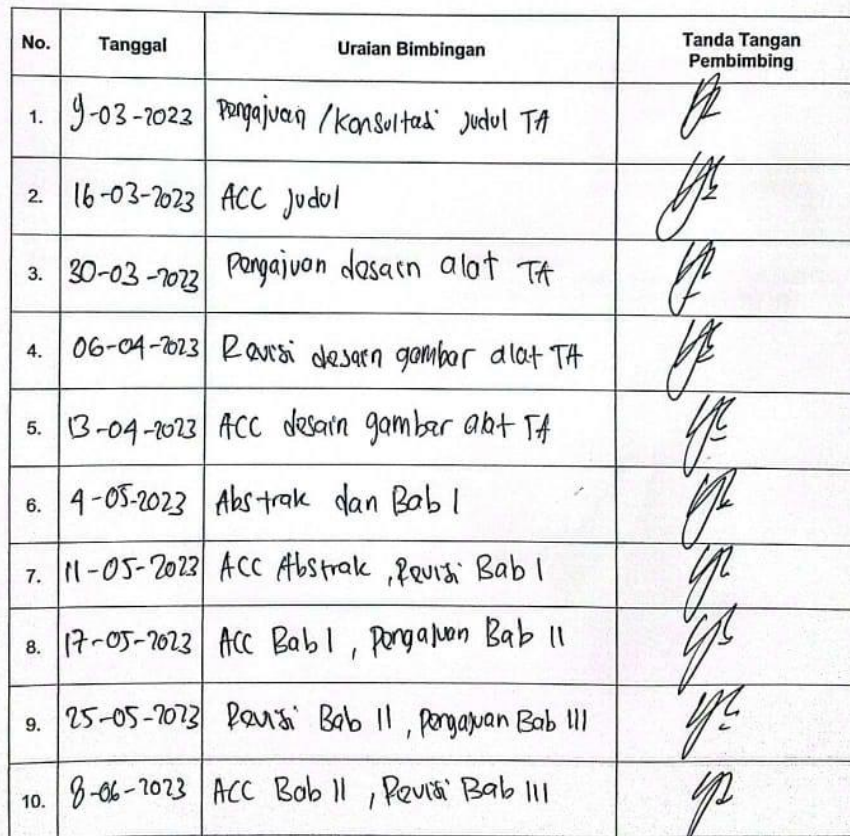 No. Tanggal Uraian Bimbingan Tanda Tangan Pembimbing
1. 9-03-2023 Pengajuan / Konsultasi Judul TA
2. 16-03-2023 ACC Judul
3. 30-03-2023 Pengajuan desain alat TA
4. 06-04-2023 Revisi desain gambar alat TA
5. 13-04-2023 ACC desain gambar alat TA
6. 4-05-2023 Abstrak dan Bab I
7. 11-05-2023 ACC Abstrak, Revisi Bab I
8. 17-05-2023 ACC Bab I, Pengajuan Bab II
9. 25-05-2023 Revisi Bab II, Pengajuan Bab III
10. 8-06-2023 ACC Bab II, Revisi Bab III